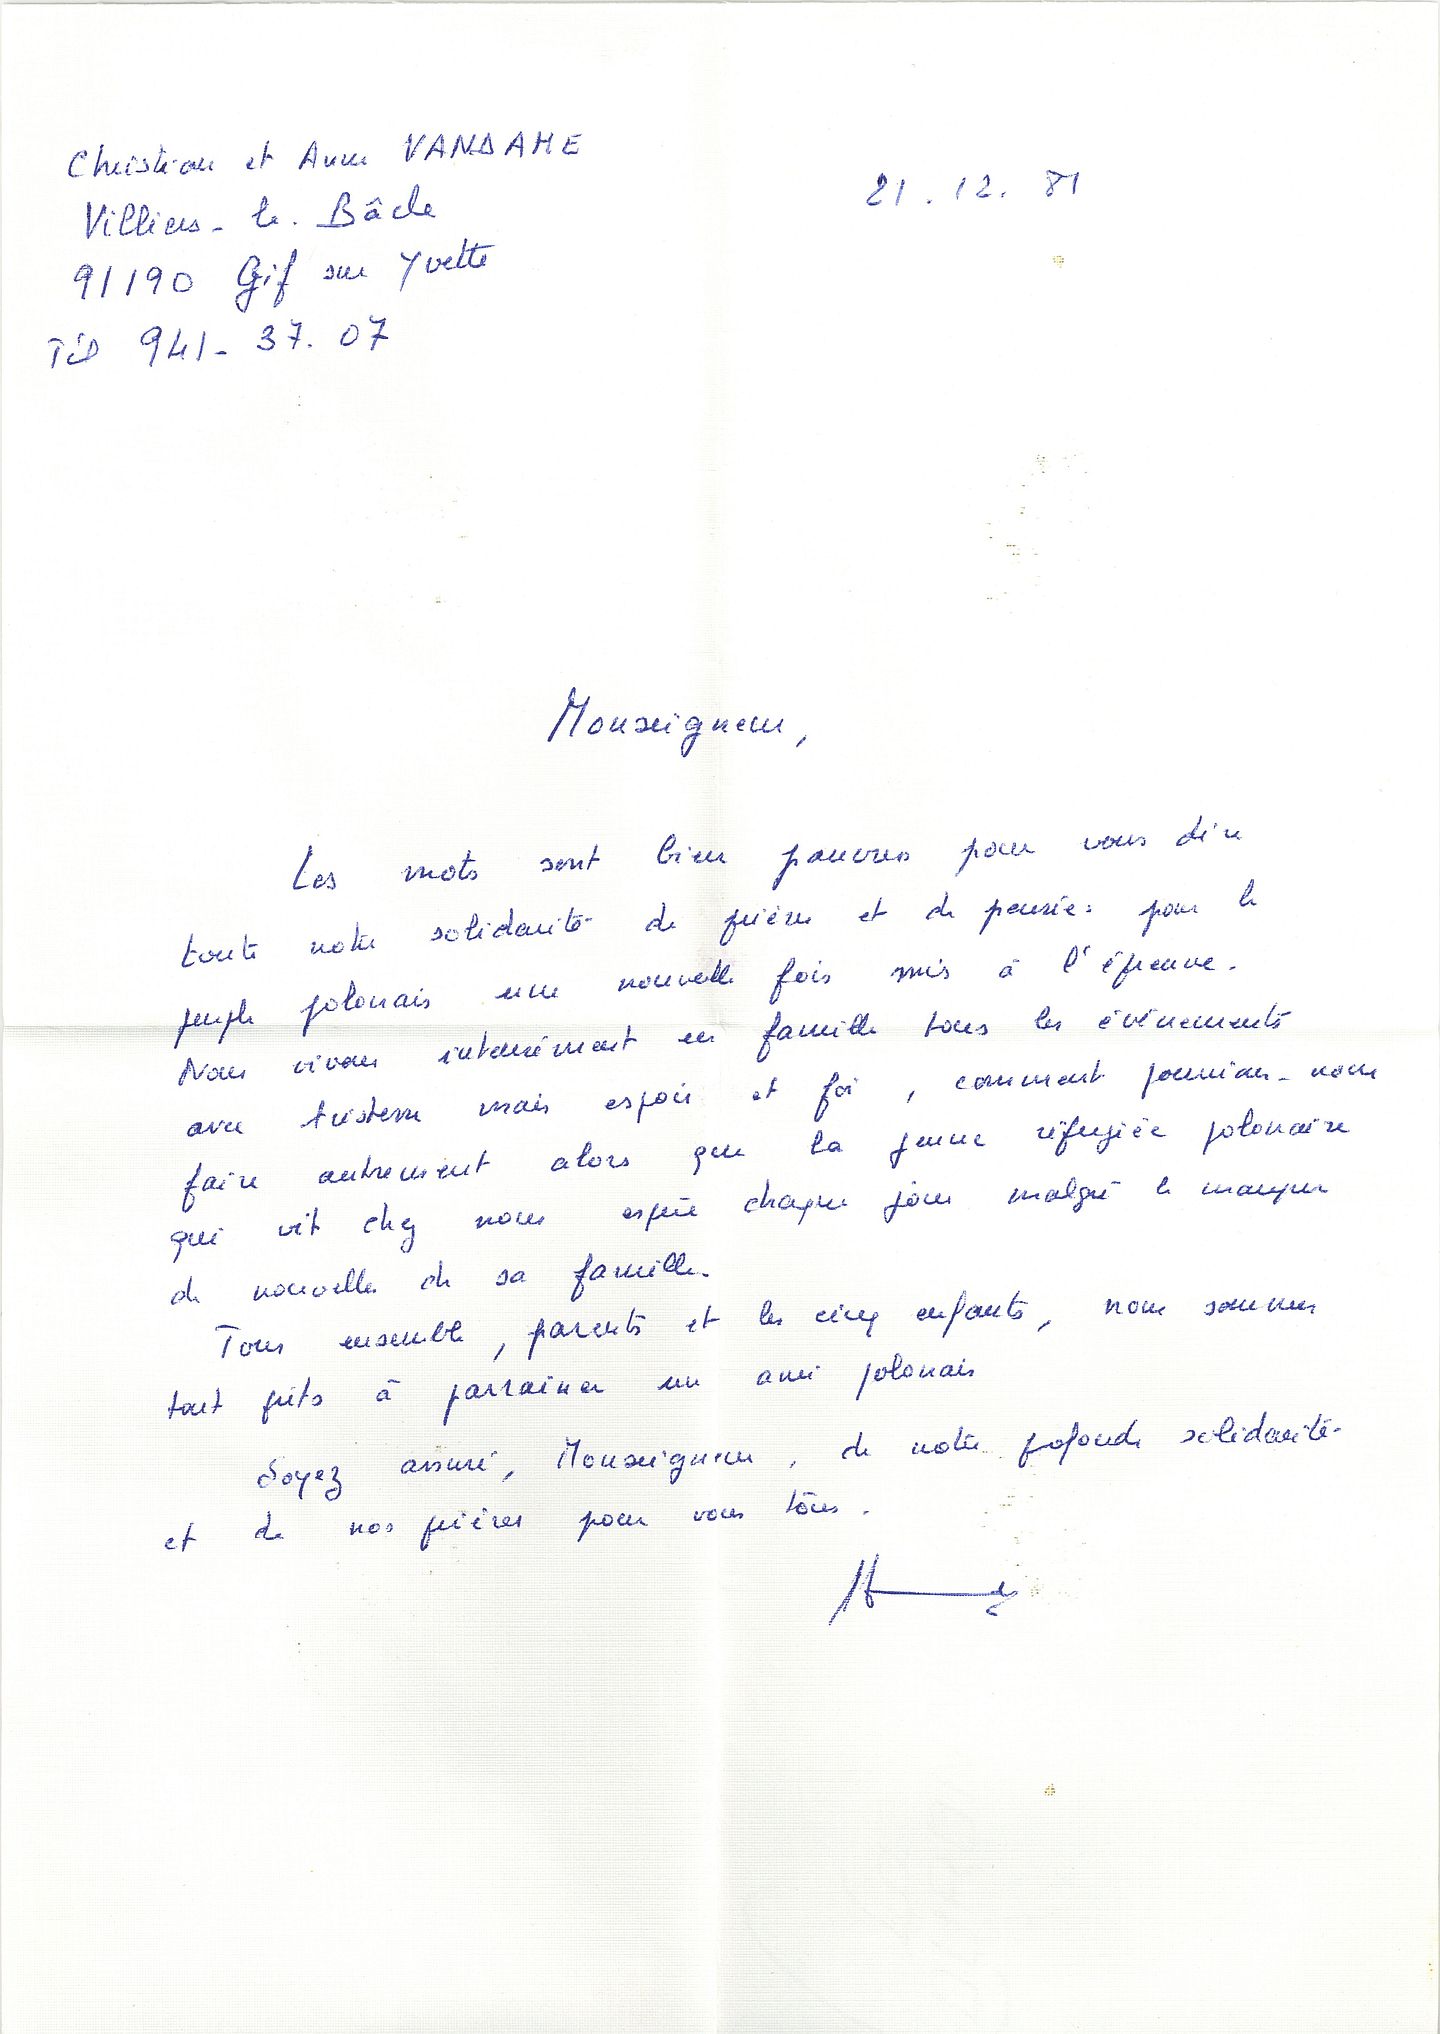 Christian et Anne VANDAME
Villiers-le-Bâcle
91190 Gif sur Yvette
Tél 941-37.07
21.12.81
Monseigneur,
Les mots sont bien pauvres pour vous dire
toute notre solidarité de prière et de pensée pour le
peuple polonais une nouvelle fois mis à l'épreuve.
Nous vivons intensément en famille tous les événements
avec tristesse mais espoir et foi, comment pourrions-nous
faire autrement alors que la jeune réfugiée polonaise
qui vit chez nous espère chaque jour malgré le manque
de nouvelles de sa famille.
Tous ensemble, parents et les cinq enfants, nous sommes
tout prêts à parrainer un ami polonais
Soyez assuré, Monseigneur, de notre profonde solidarité
et de nos prières pour vous tous.